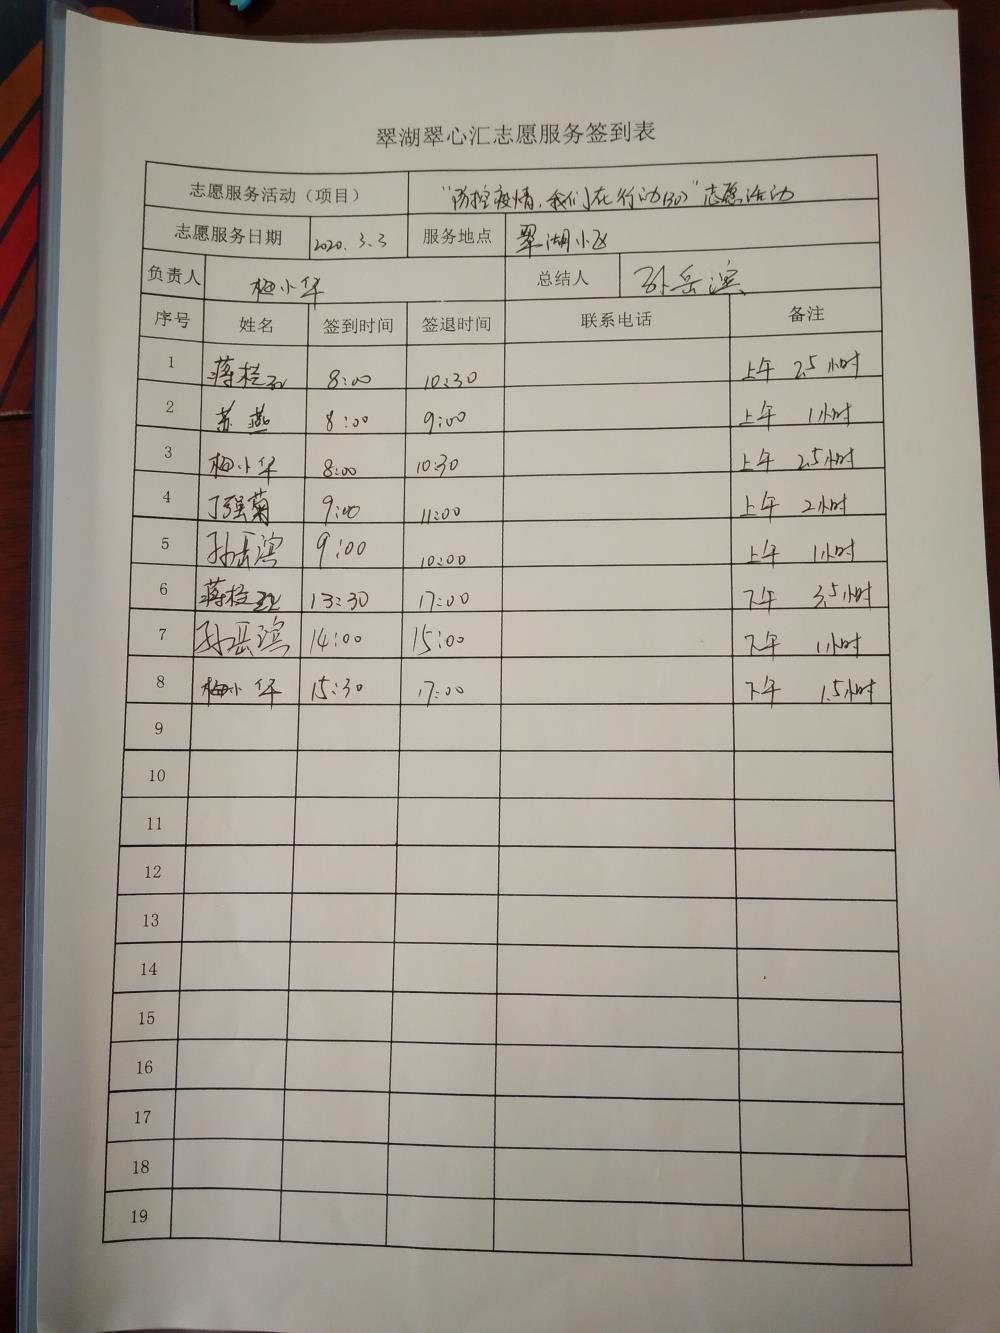 翠湖翠心汇志愿服务签到表
志愿服务活动（项目） "防控疫情，我们在行动(30)"志愿活动
志愿服务日期 2020.3.3 服务地点 翠湖小区
负责人 梅小华 总结人 孙岳滨
序号 姓名 签到时间 签退时间 联系电话 备注
1 蒋桂 8:00 10:30 上午 2.5小时
2 苏燕 8:00 9:00 上午 1小时
3 梅小华 8:00 10:30 上午 2.5小时
4 丁强菊 9:00 11:00 上午 2小时
5 孙岳滨 9:00 10:00 上午 1小时
6 蒋桂 13:30 17:00 下午 3.5小时
7 孙岳滨 14:00 15:00 下午 1小时
8 梅小华 15:30 17:00 下午 1.5小时
9
10
11
12
13
14
15
16
17
18
19